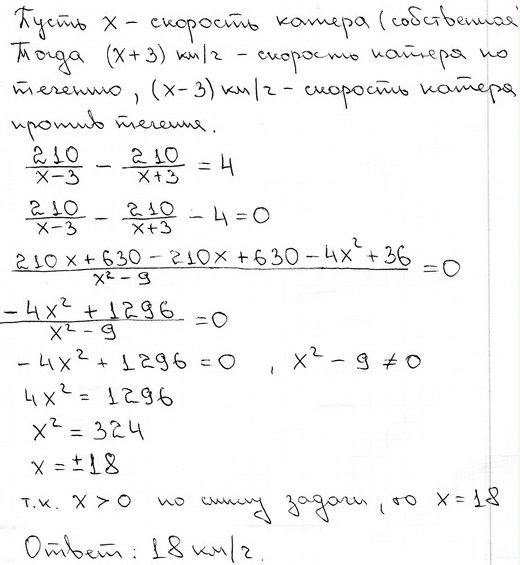 Пусть x – скорость катера (собственная
Тогда (x+3) км/г – скорость катера по
течению, (x-3) км/г – скорость катера
против течения.
210/(x-3) - 210/(x+3) = 4
210/(x-3) - 210/(x+3) - 4 = 0
(210x + 630 - 210x + 630 - 4x² + 36)/(x² - 9) = 0
(-4x² + 1296)/(x² - 9) = 0
-4x² + 1296 = 0 , x² - 9 ≠ 0
4x² = 1296
x² = 324
x = ±18
т.к. x > 0 по смыслу задачи, то x = 18
Ответ: 18 км/г.